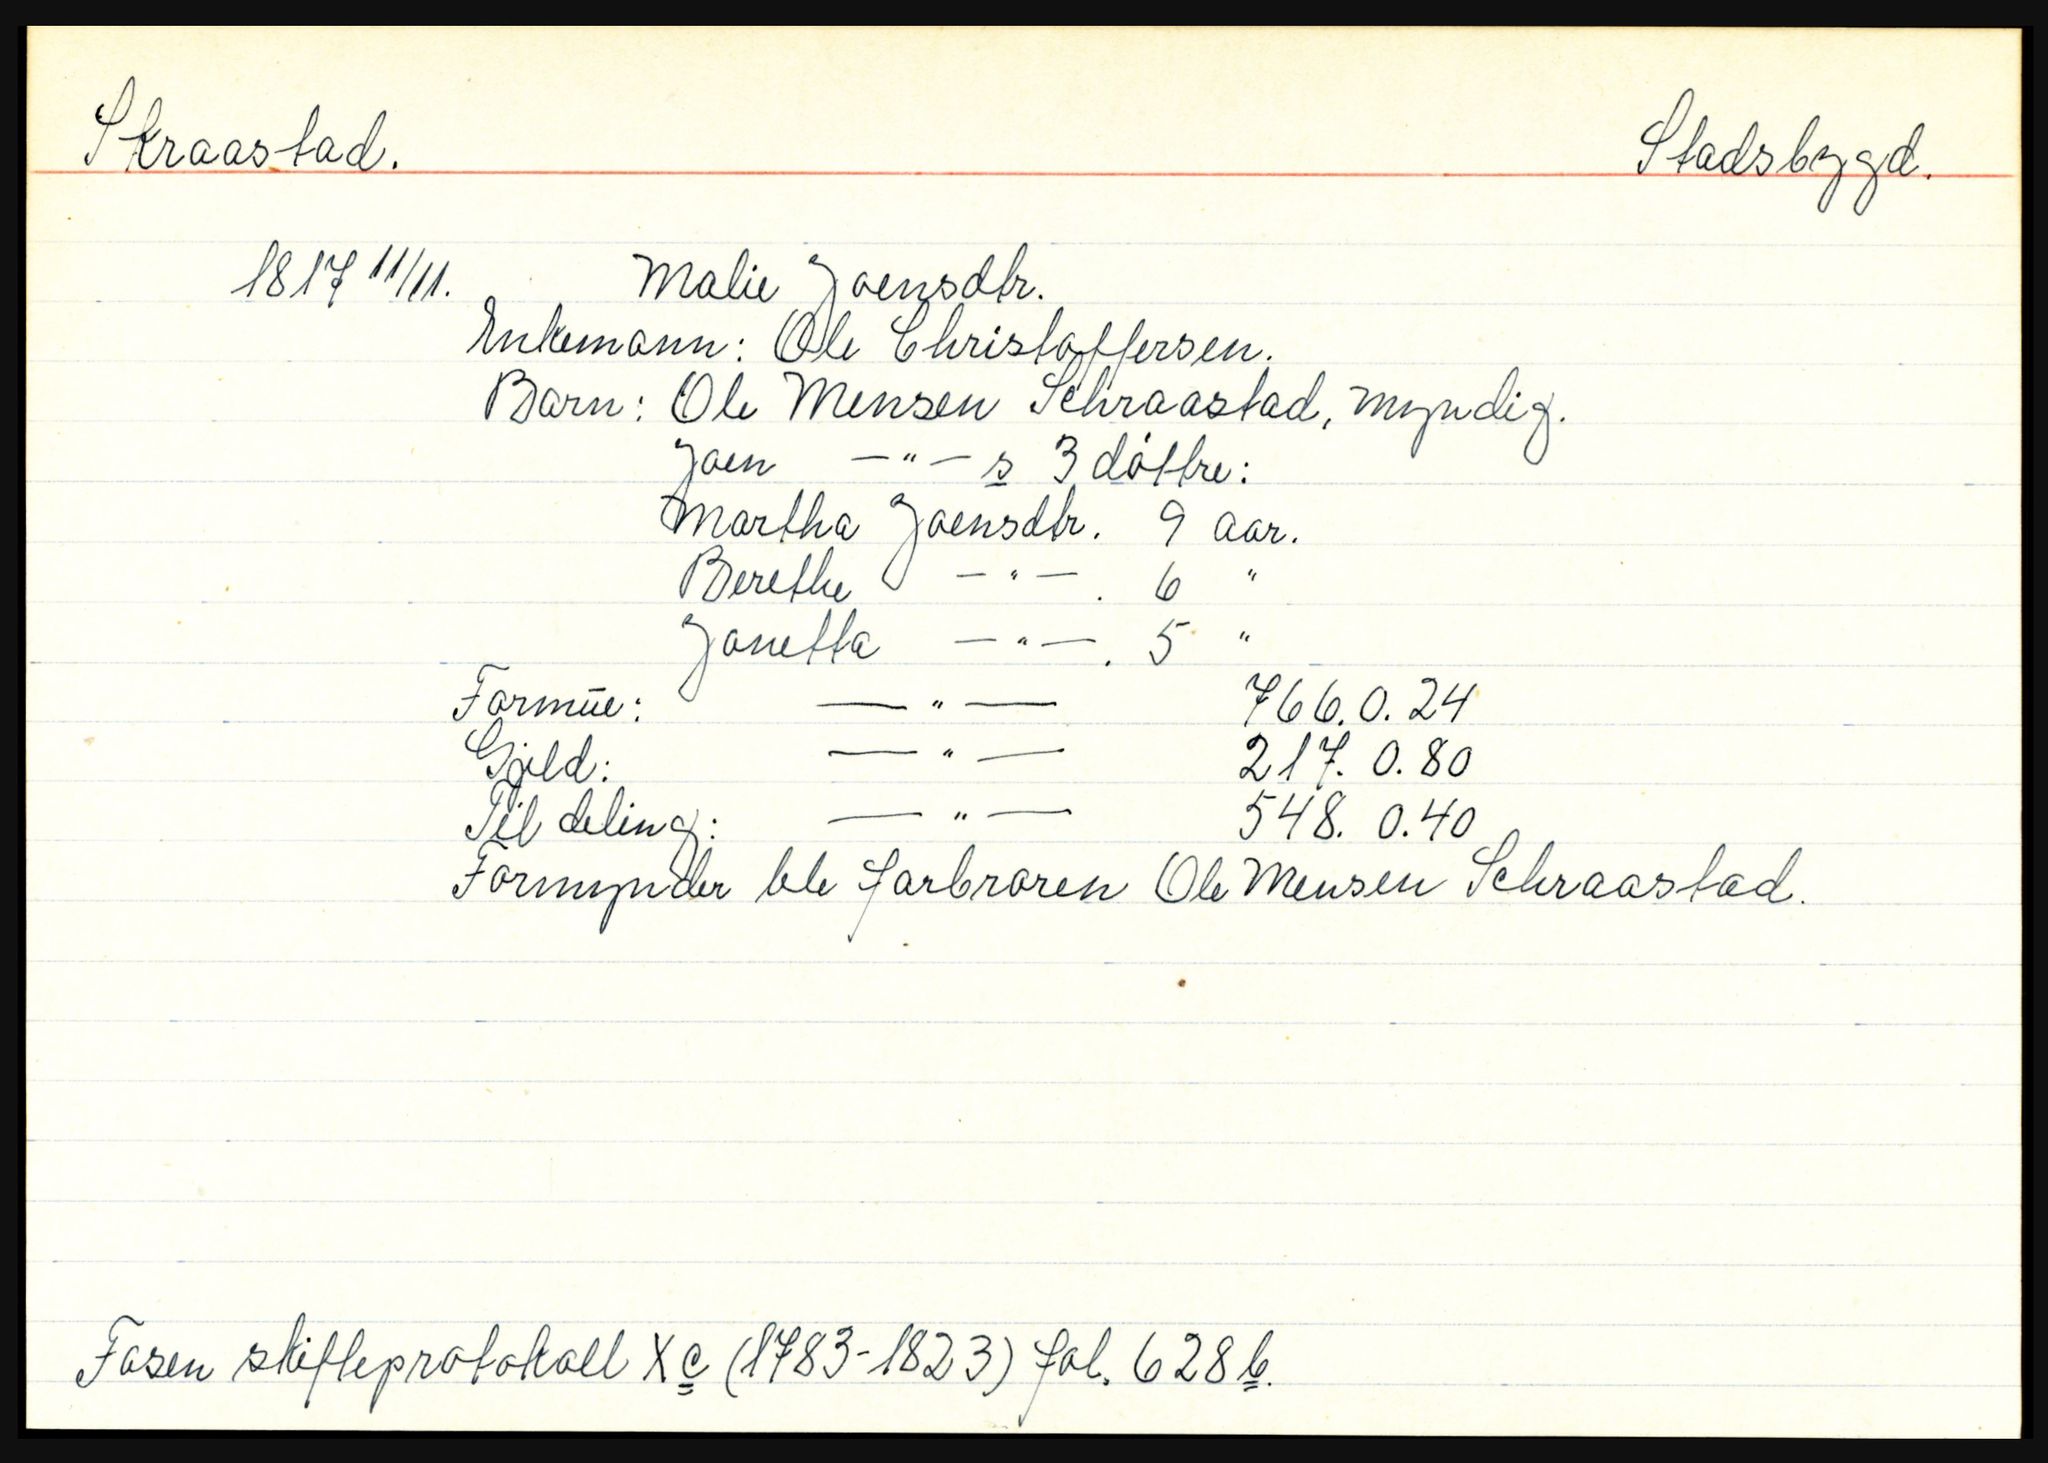 Skraastad. Stadsbygd.
1817 11/11. Malie Joensdtr.
Enkemann: Ole Christoffersen.
Barn: Ole Mensen Schraastad, myndig.
Joen —"— s 3 døttre:
Martha Joensdtr. 9 aar.
Berethe —"—. 6 "
Jonetta —"—. 5 "
Formue: —"— 766.0.24
Gjeld: —"— 217.0.80
Til deling: —"— 548.0.40
Formynder ble farbroren Ole Mensen Schraastad.
Fosen skifteprotokoll Xc (1783-1823) fol. 628b.